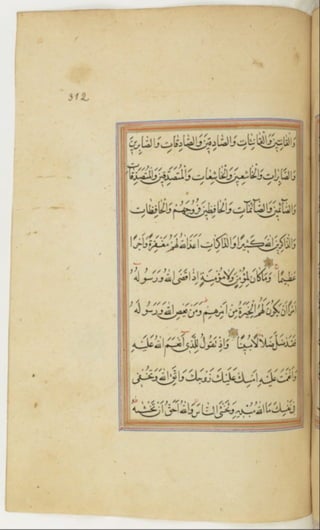 312
وَالْقَانِتِينَ وَالْقَانِتَاتِ وَالصَّادِقِينَ وَالصَّادِقَاتِ وَالصَّابِرِينَ
وَالصَّابِرَاتِ وَالْخَاشِعِينَ وَالْخَاشِعَاتِ وَالْمُتَصَدِّقِينَ وَالْمُتَصَدِّقَاتِ
وَالصَّآئِمِينَ وَالصَّآئِمَاتِ وَالْحَافِظِينَ فُرُوجَهُمْ وَالْحَافِظَاتِ
وَالذَّاكِرِينَ اللهَ كَثِيرًا وَالذَّاكِرَاتِ اَعَدَّ اللهُ لَهُمْ مَغْفِرَةً وَاَجْرًا
عَظِيمًا وَمَا كَانَ لِمُؤْمِنٍ وَلَا مُؤْمِنَةٍ اِذَا قَضَى اللهُ وَرَسُولُهُ
اَمْرًا اَنْ يَكُونَ لَهُمُ الْخِيَرَةُ مِنْ اَمْرِهِمْ وَمَنْ يَعْصِ اللهَ وَرَسُولَهُ
فَقَدْ ضَلَّ ضَلَالًا مُبِينًا وَاِذْ تَقُولُ لِلَّذِى اَنْعَمَ اللهُ عَلَيْهِ
وَاَنْعَمْتَ عَلَيْهِ اَمْسِكْ عَلَيْكَ زَوْجَكَ وَاتَّقِ اللهَ وَتُخْفِى
فِى نَفْسِكَ مَا اللهُ مُبْدِيهِ وَتَخْشَى النَّاسَ وَاللهُ اَحَقُّ اَنْ تَخْشٰيهُ